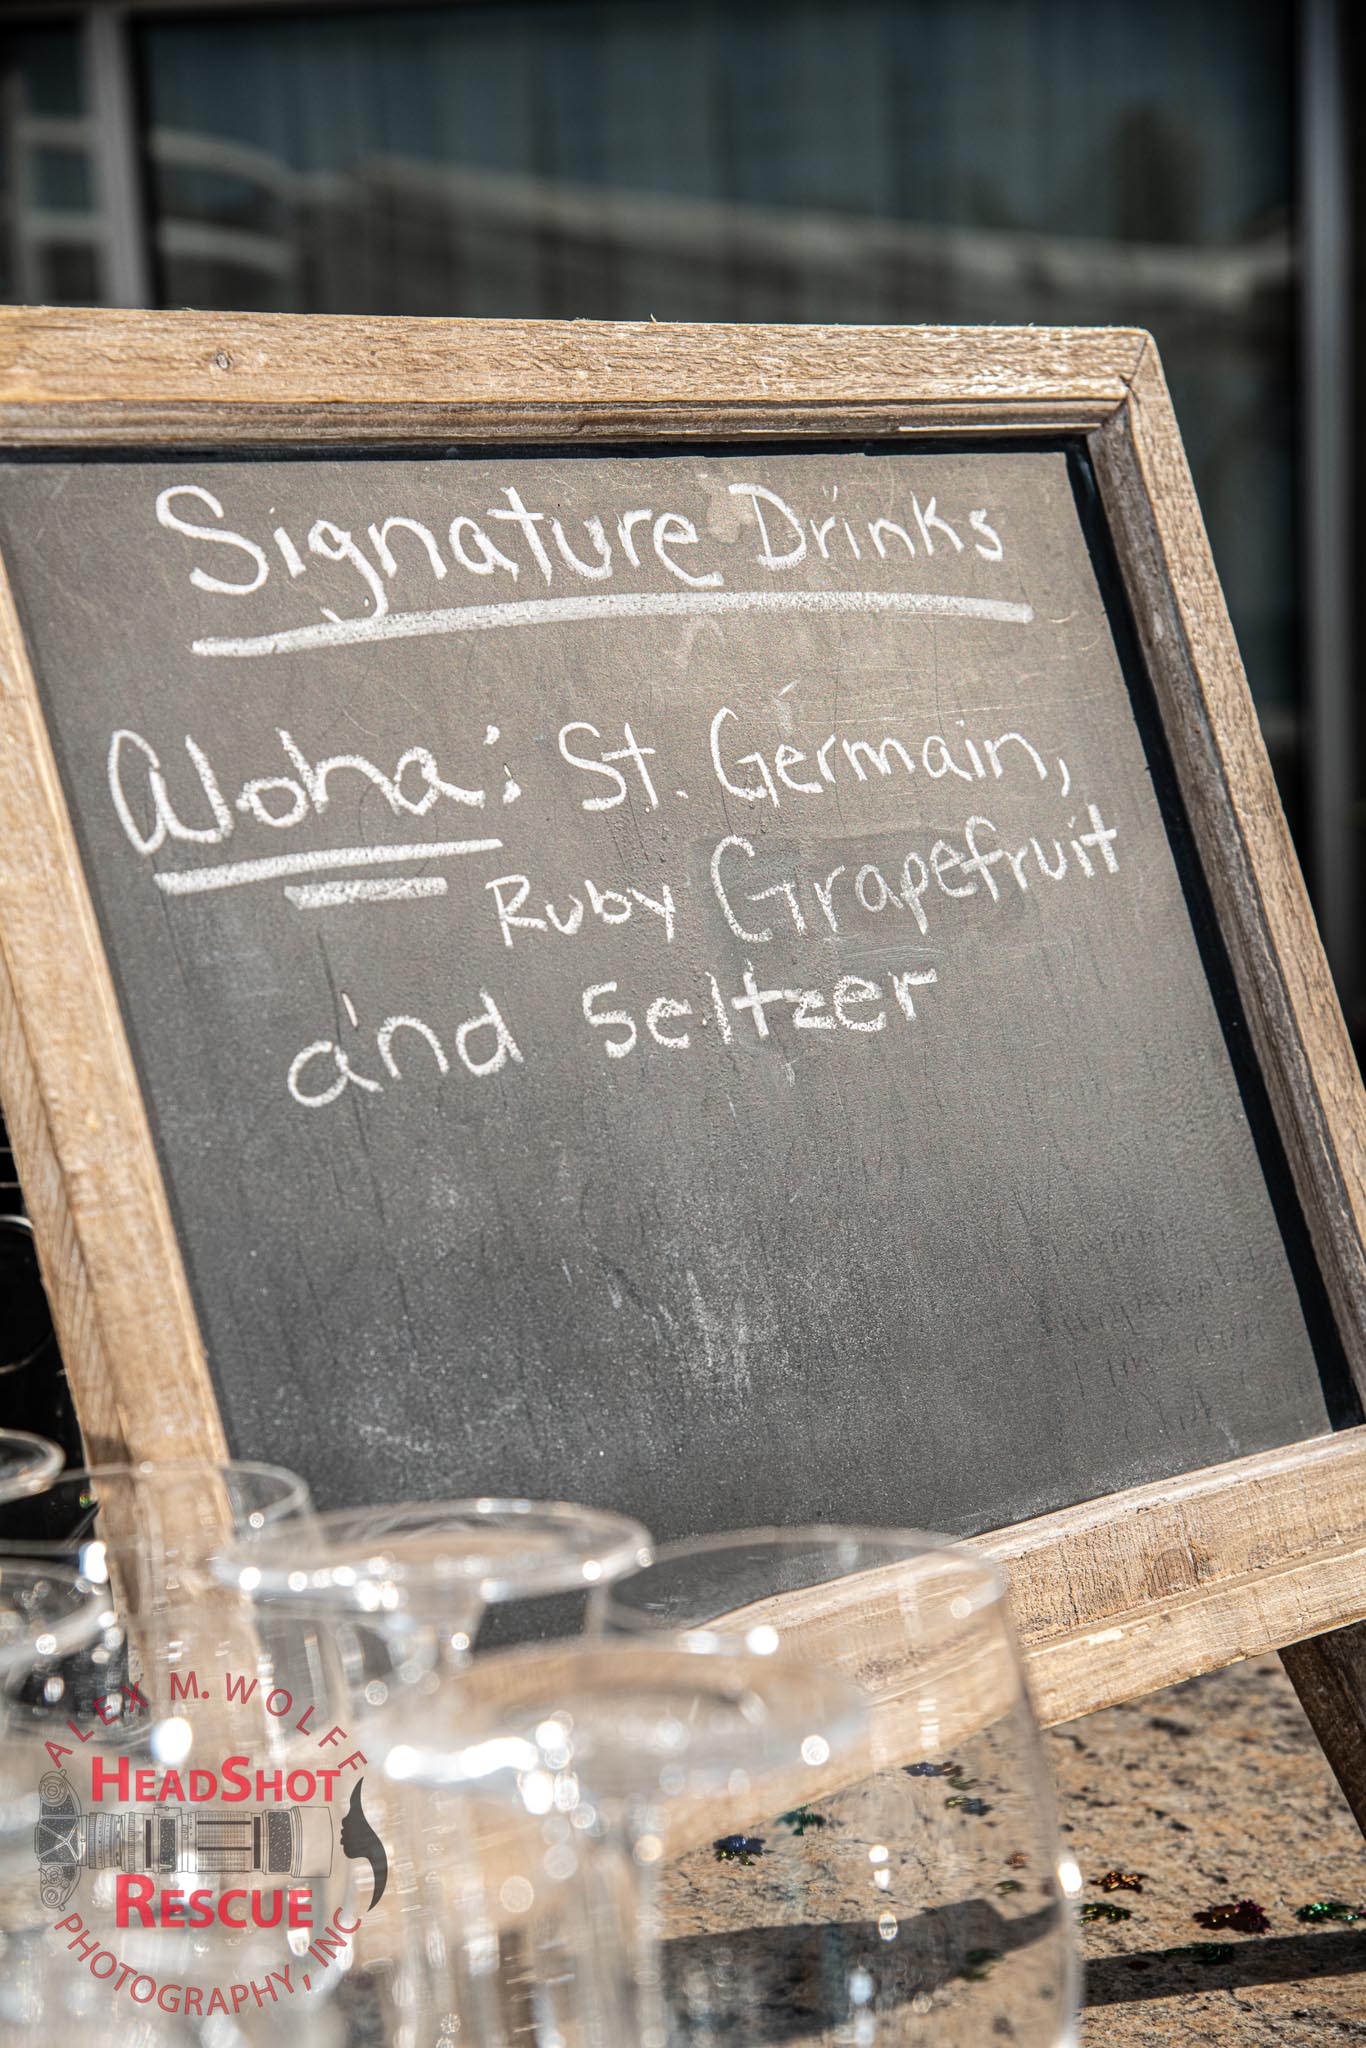 Signature Drinks
Aloha: St. Germain,
Ruby Grapefruit
and Seltzer
ALEX M. WOLFE
HEADSHOT
RESCUE
PHOTOGRAPHY, INC